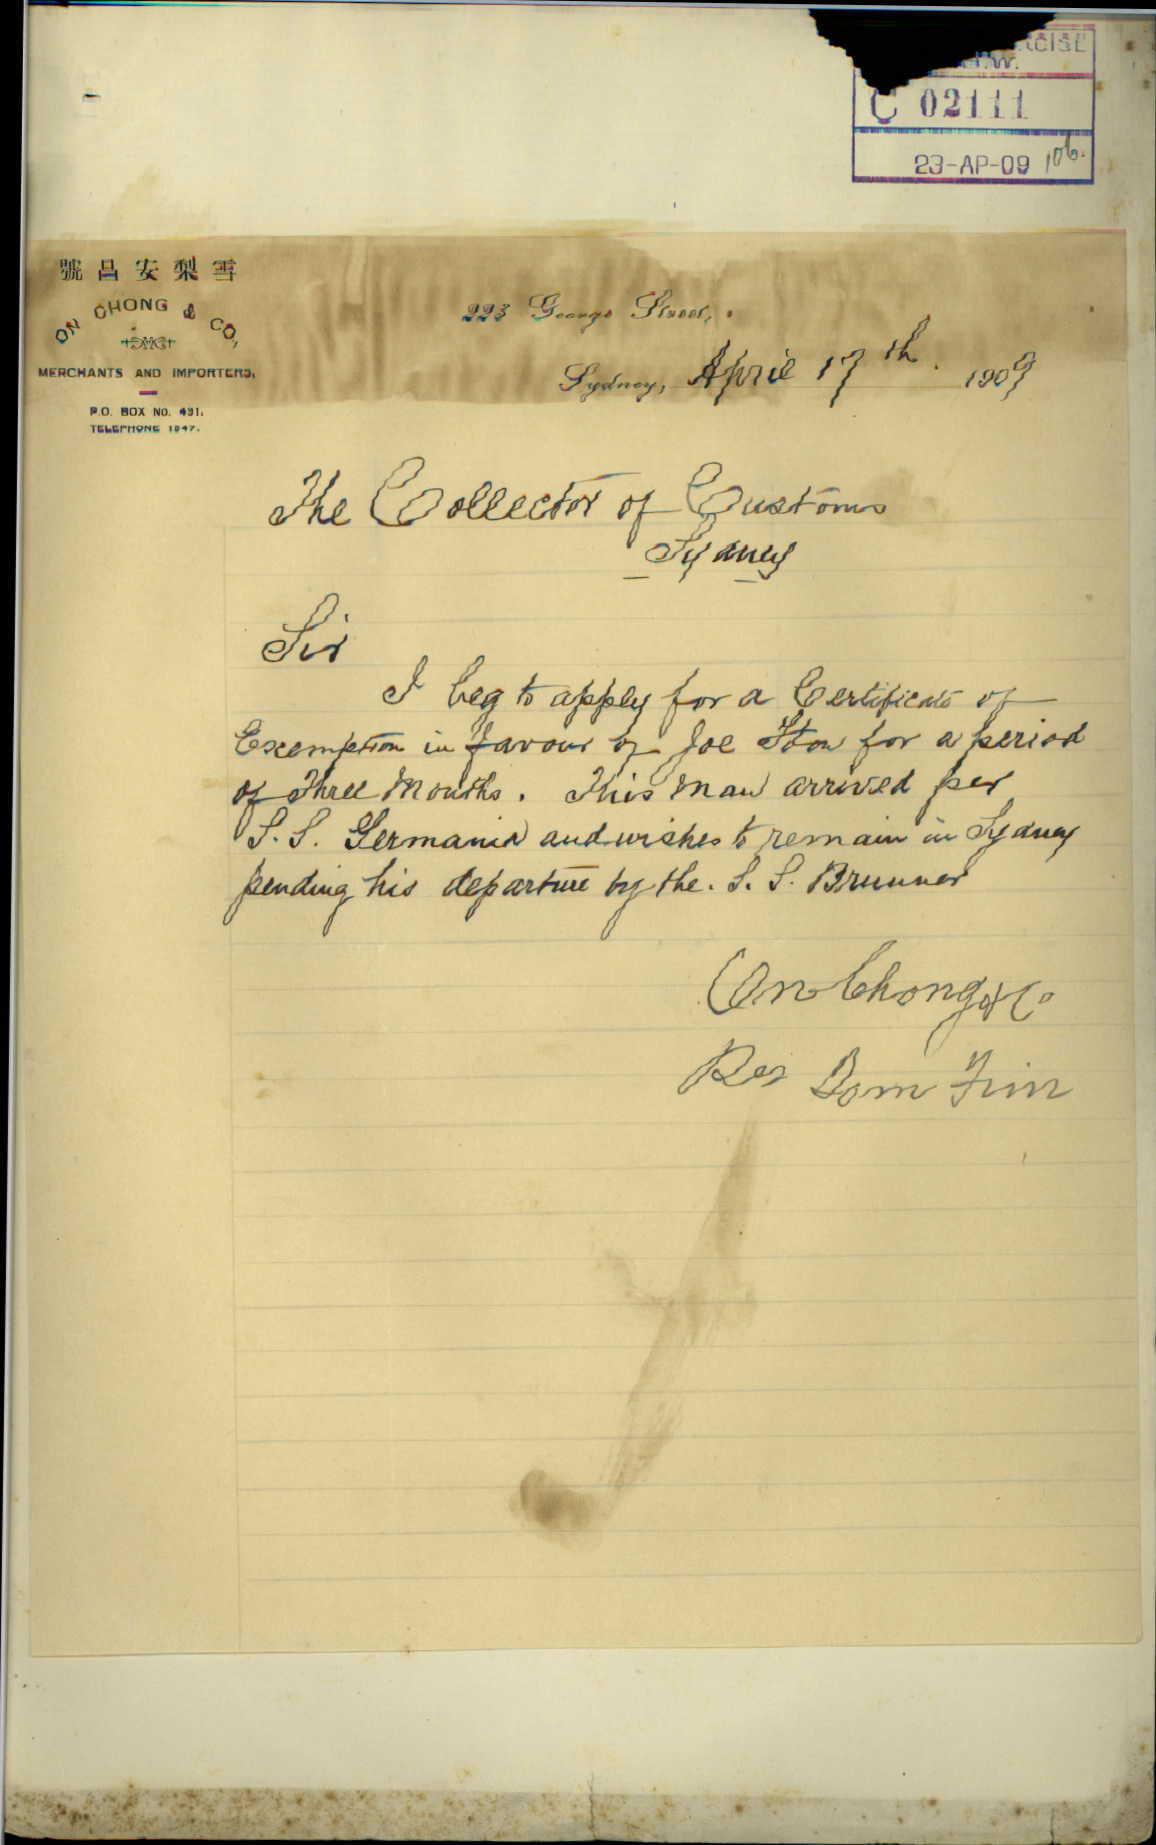 C 02111
23-AP-09 106.
號昌安梨雪
ON CHONG & CO,
MERCHANTS AND IMPORTERS,
P.O. BOX No. 491.
TELEPHONE 1847.
223 George Street,
Sydney, April 17th. 1909
The Collector of Customs
Sydney
Sir
I beg to apply for a Certificate of
Exemption in favour of Joe for a period
of Three Months. This man arrived per
S.S. Germania and wishes to remain in Sydney
pending his departure by the. S.S. Brunner
On Chong & Co
Per